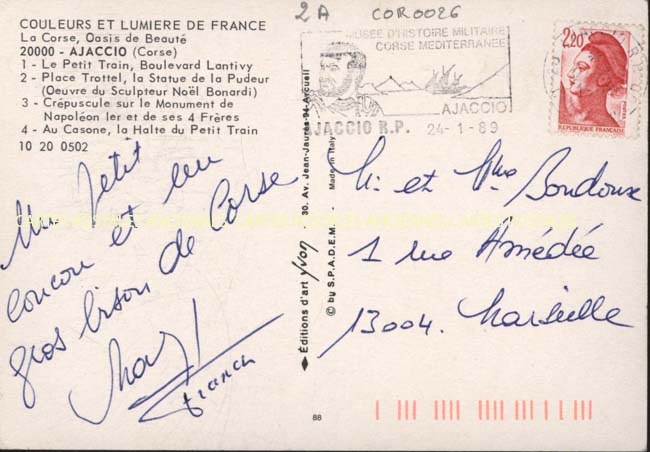 COULEURS ET LUMIERE DE FRANCE
La Corse, Oasis de Beauté
20000 - AJACCIO (Corse)
1 - Le Petit Train, Boulevard Lantivy
2 - Place Trottel, la Statue de la Pudeur
(Oeuvre du Sculpteur Noël Bonardi)
3 - Crépuscule sur le Monument de
Napoléon Ier et de ses 4 Frères
4 - Au Casone, la Halte du Petit Train
10 20 0502
2A COR0026
MUSEE D'HISTOIRE MILITAIRE
CORSE MEDITERRANEE
AJACCIO
AJACCIO R.P. 24-1-89
2,20
POSTES
REPUBLIQUE FRANÇAISE
Un petit
coucou et un
gros bison de Corse
Franck
Editions d'art yvon 30, Av. Jean-Jaurès-94-Arcueil
© by S.P.A.D.E.M. - Made in Italy
88
M. et Mme Bondoux
1 rue Amédée
13004. Marseille